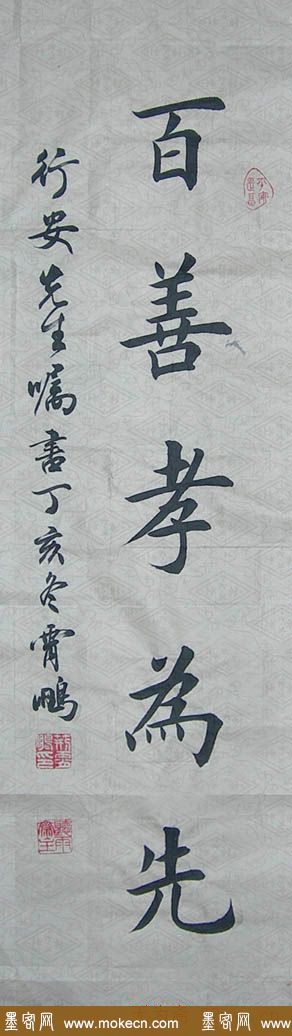 百善孝為先
行安先生嘱書丁亥冬霄鵬
墨客网 www.mokecn.com 墨客网 www